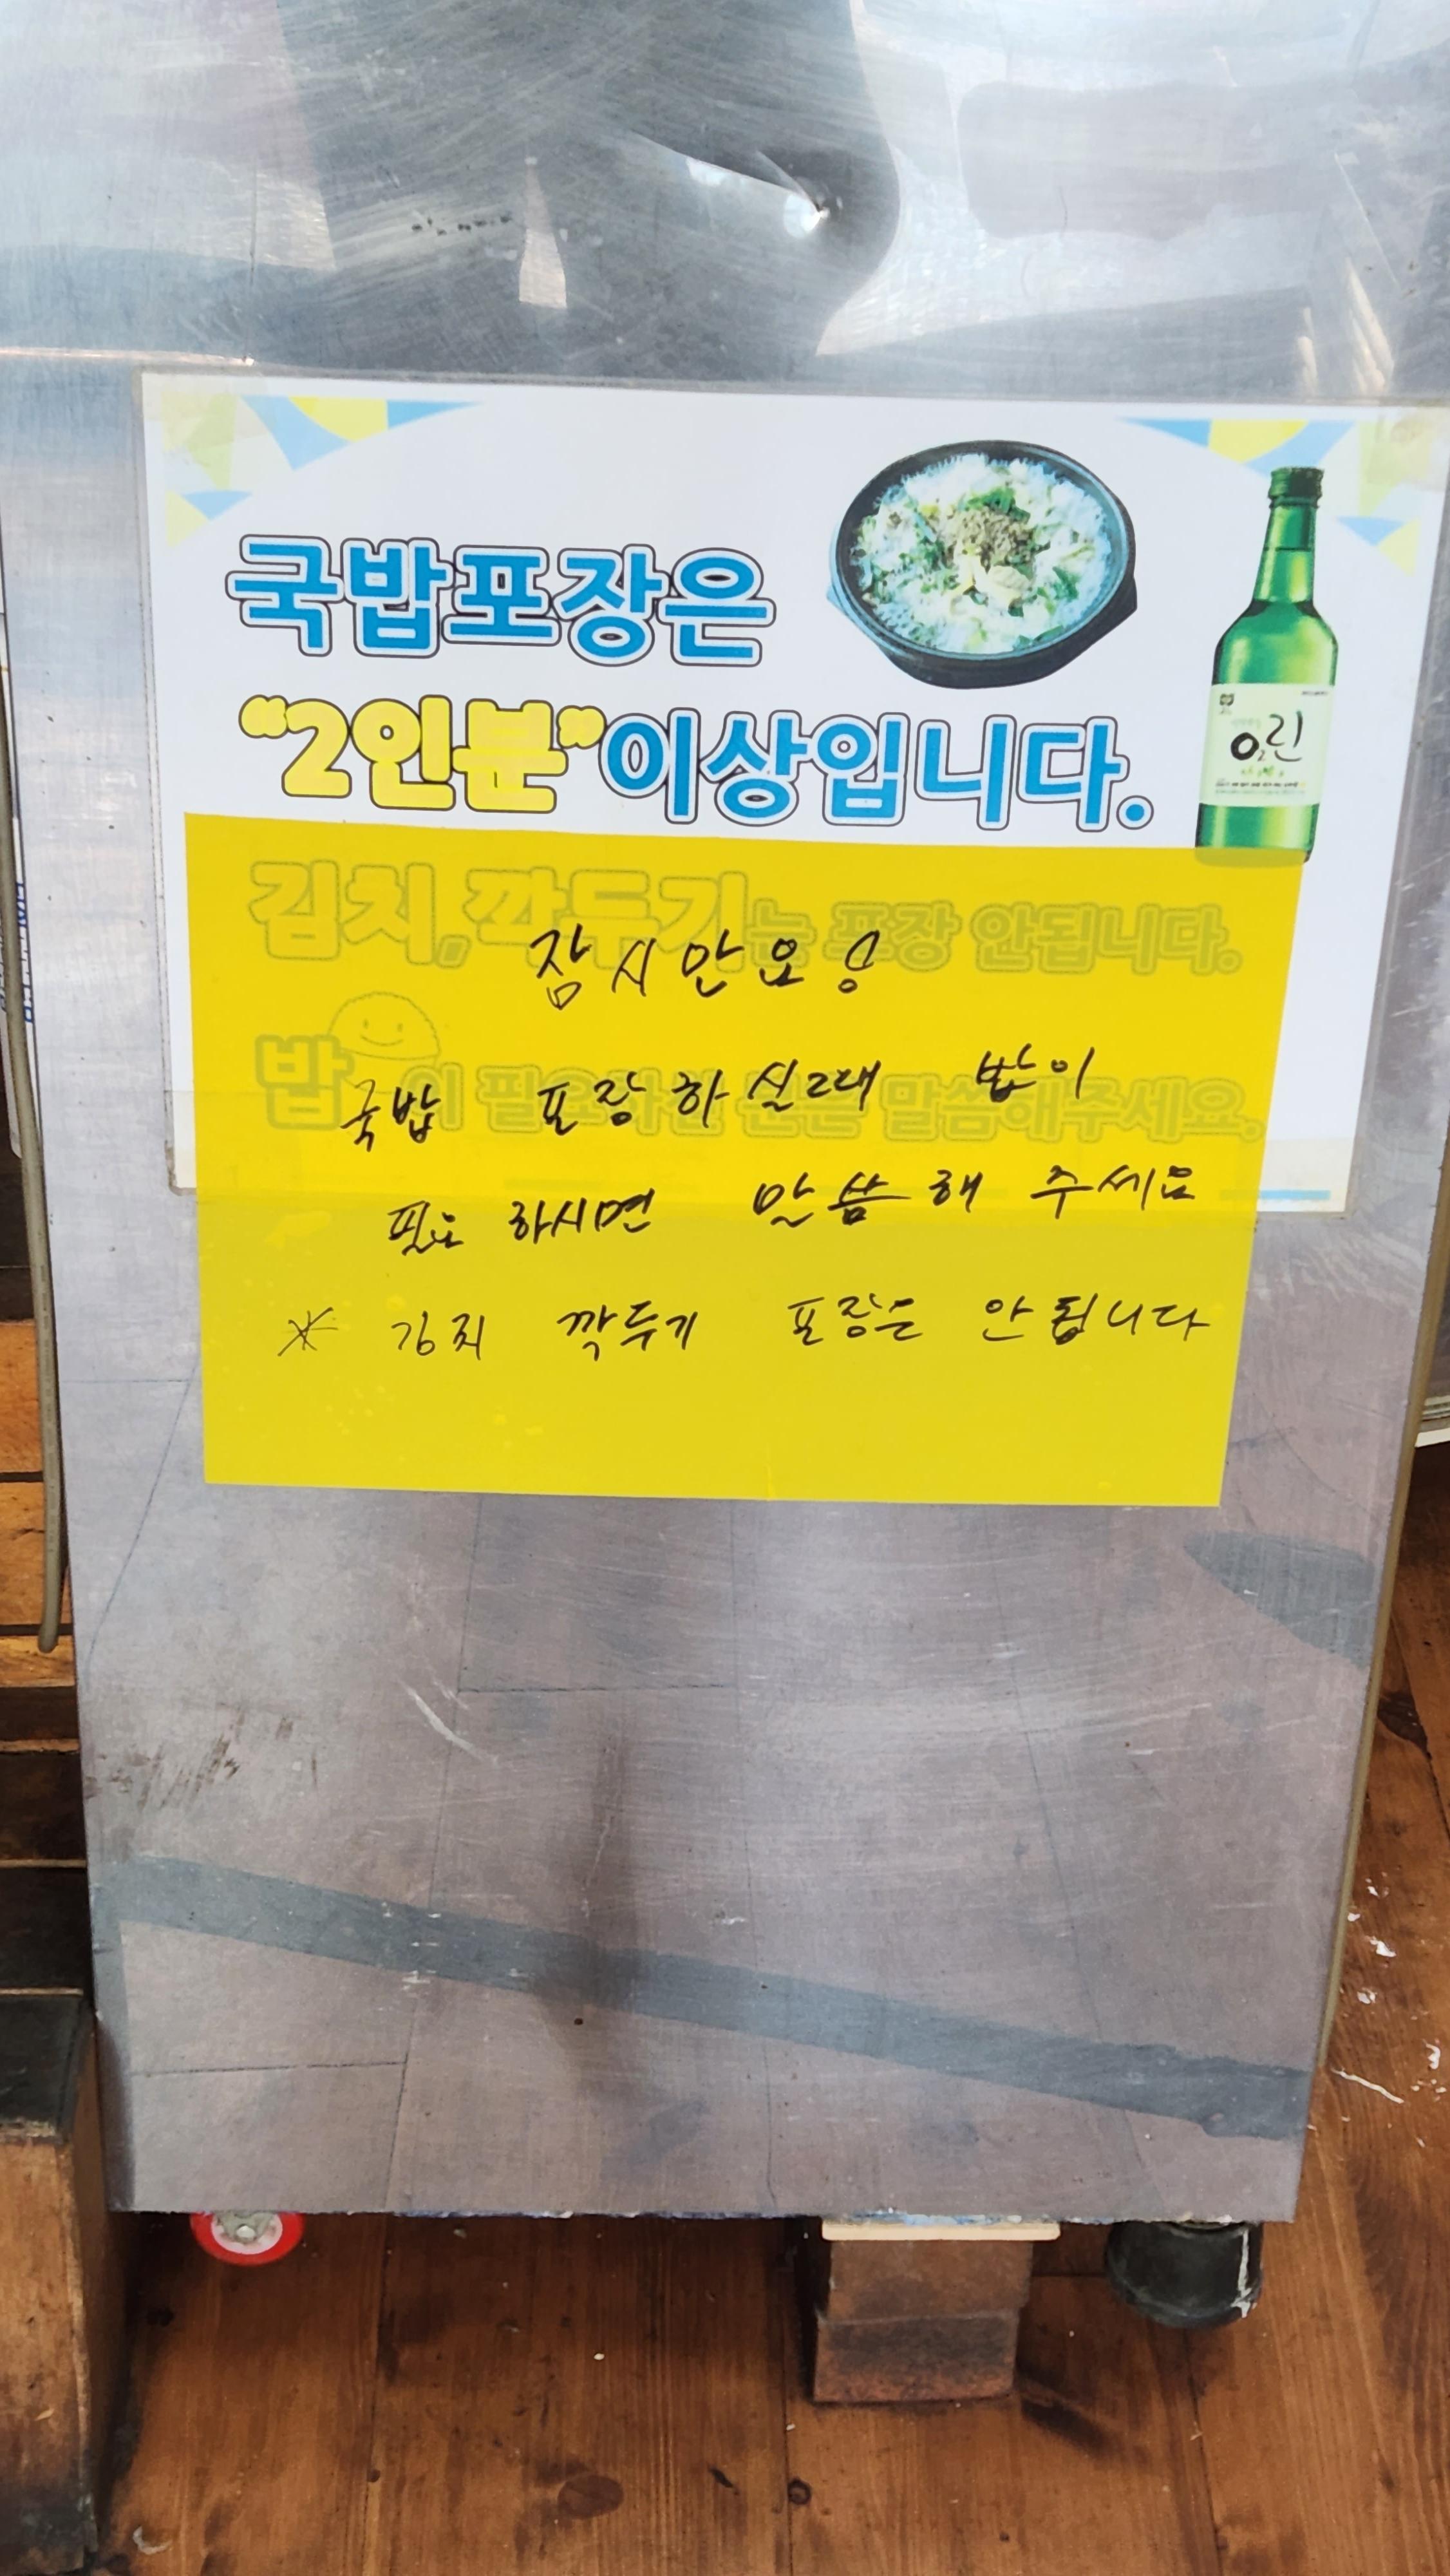 국밥포장은
"2인분"이상입니다.
린
김치,깍두기는 포장 안됩니다.
잠시만요!
밥이 필요하신 분은 말씀해주세요.
국밥 포장하실때 밥이
필요 하시면 말씀해 주세요
※ 김치 깍두기 포장은 안됩니다